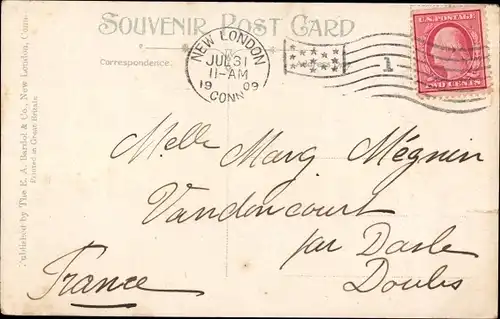 SOUVENIR POST CARD
Correspondence.
NEW LONDON
JUL 31
11-AM
1909
CONN
1
U.S. POSTAGE
TWO CENTS
Published by The E. A. Bardol & Co., New London, Conn.
Printed in Great Britain
Melle Marg Mégnin
Vandoncourt
par Dasle
Doubs
France